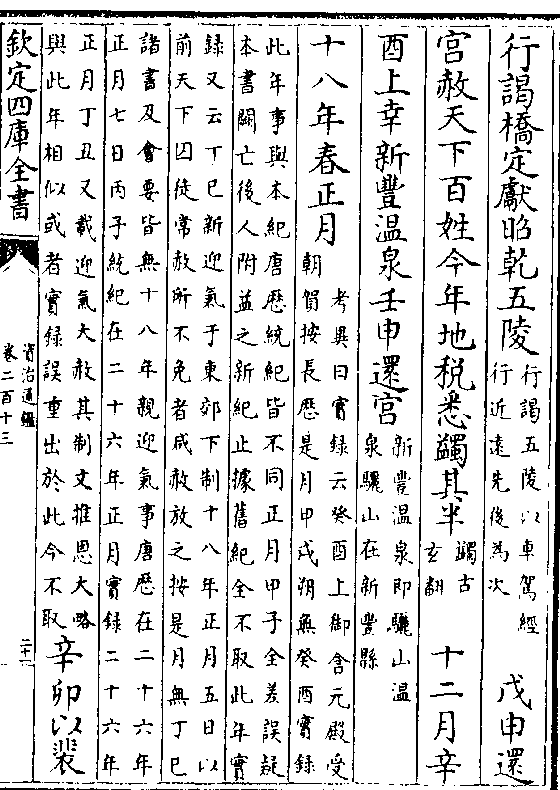 行謁橋定獻昭乾五陵行謁五陵以車駕經
行近遠先後為次戊申還
宮赦天下百姓今年地税悉蠲其半蠲古
玄翻十二月辛
酉上幸新豐温泉壬申還宮新豐温泉即驪山温
泉驪山在新豐縣
十八年春正月考異曰實録云癸酉上御含元殿受
朝賀按長厯是月甲戌朔無癸酉實録
此年事與本紀唐厯統紀皆不同正月甲子全差誤疑
本書闕亡後人附益之新紀止據舊紀全不取此年實
録又云丁巳新迎氣于東郊下制十八年正月五日以
前天下囚徒常赦所不免者咸赦放之按是月無丁巳
諸書及會要皆無十八年親迎氣事唐厯在二十六年
正月七日丙子統紀在二十六年正月實録二十六年
正月丁丑又載迎氣大赦其制文推恩大略
與此年相似或者實録誤重出於此今不取辛卯以裴
欽定四庫全書
資治通鑑
卷二百十三
二十一